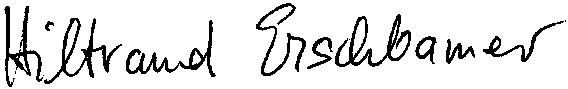 Hiltraud Erschbamer